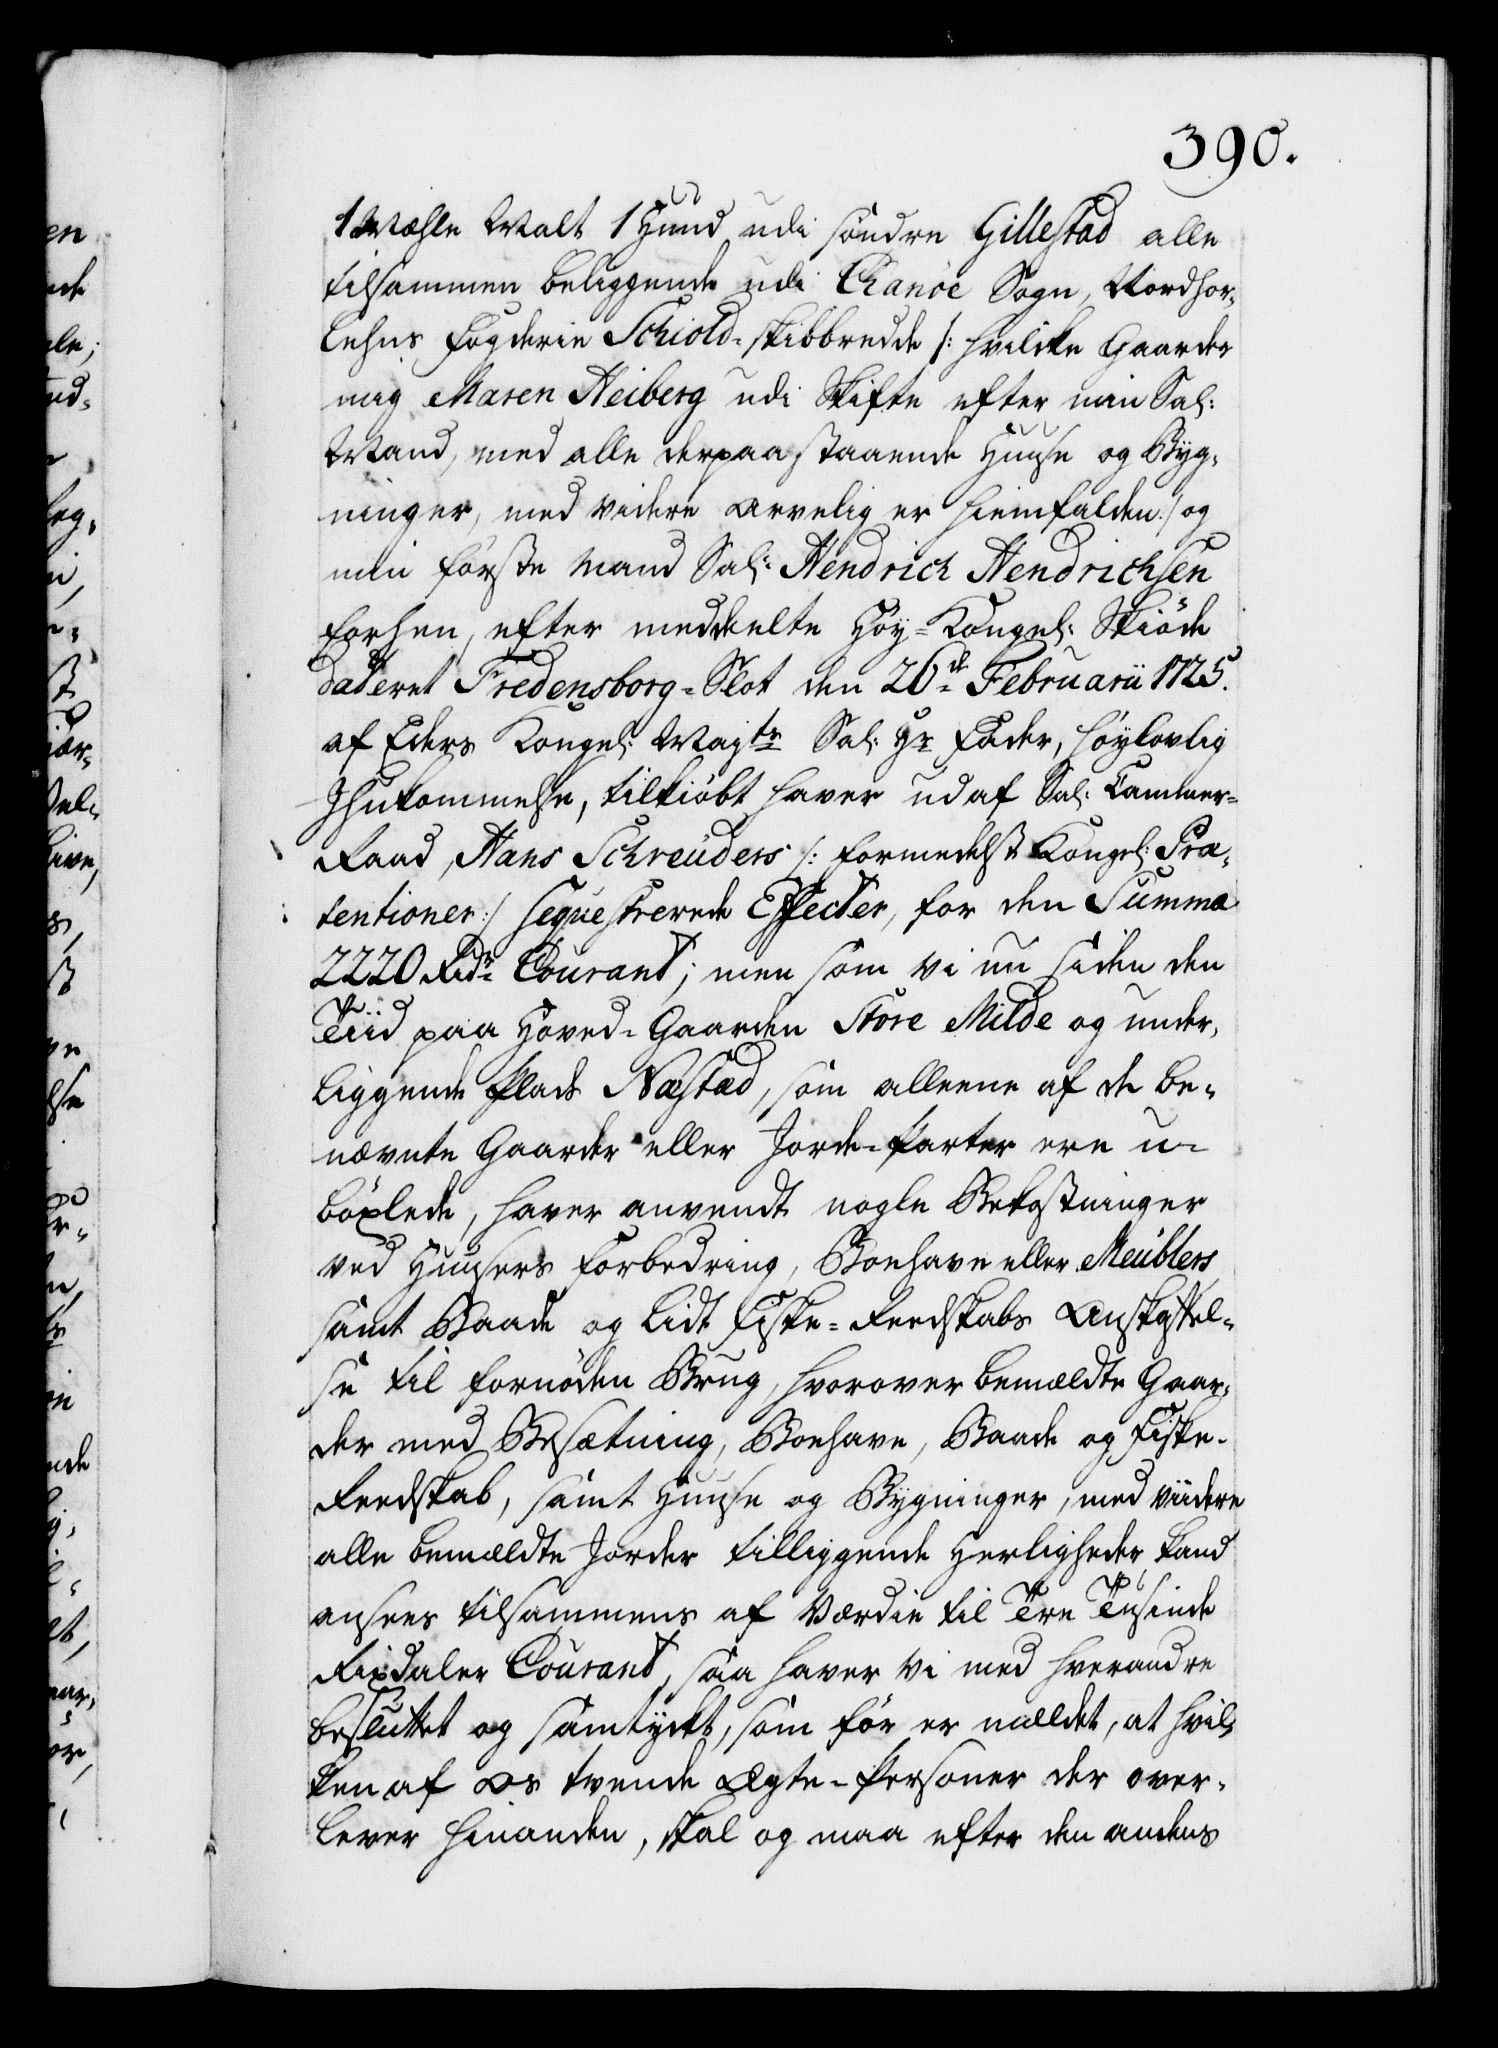 390.
1 Mæhle Malt 1 Hund udi söndre Gillestad alle
tilsammen beliggende udi Chanöe Sogn, Nordhor-
lehns Fogderie Schiold-skibbredde /: hvilcke Gaarder
mig Maren Heiberg udi Skifte efter min Sal:
Mand, med alle derpaa staaende Huuse og Byg-
ninger, med videre arvelig er hiemfalden :/ og
min förste Mand Sal: Hendrich Hendrichsen
forhen, efter meddeelte Höy-Kongel: Skiöde
dateret Fredensborg-Slot den 26de Februarii 1725.
af Eders Kongel: Mayts Sal: Hr Fader, höylovlig
Ihukommelse, tilkiöbt haver udaf Sal: Cammer-
Raad, Hans Schreüders /: formedelst Kongel: Præ-
tentioner :/ seqvestrerede Effecter, for den Summa
2220 Rdr Courant; men som vi nu siden den
Tiid paa Hoved-Gaarden Store Milde og under-
liggende Plads Næstad, som alleene af de be-
nævnte Gaarder eller Jorde-Parter ere u-
böxlede, haver anvendt nogle Bekostninger
ved Huusers Forbedring, Boehave eller Meübler,
samt Baade og lidt Fiske-Reedskabs Anskaffel-
se til fornöden Brug, hvorover bemældte Gaar-
der med Besætning, Boehave, Baade og Fiske-
Reedskab, samt Huuse og Bygninger, med viidere
alle bemældte Jorder tilliggende Herligheder kand
ansees tilsammens af Værdie til Tre Tusinde
Rixdaler Courant, saa haver vi med hverandre
besluttet og samtyckt, som för er mældet, at hvil-
ken af Os tvende Ægte-Personer der over-
lever hinanden, skal og maa efter den andens